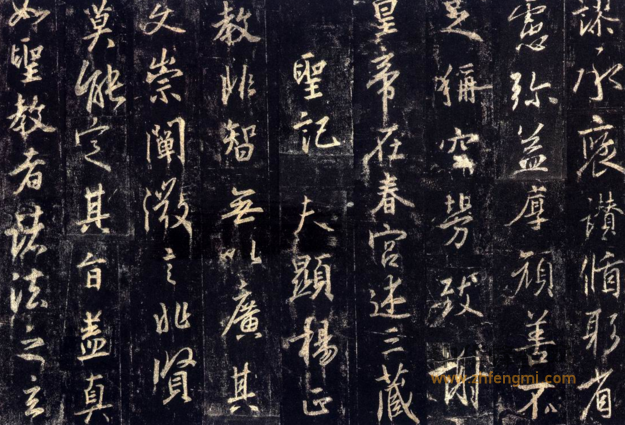 謬承褒讚循躬省
慮彌益厚顏善不
足稱空勞致謝
皇帝在春宮述三藏
聖記 夫顯揚正
教非智無以廣其
文崇闡微言非賢
莫能定其旨蓋真
如聖教者諸法之玄
www.zhfengmi.com